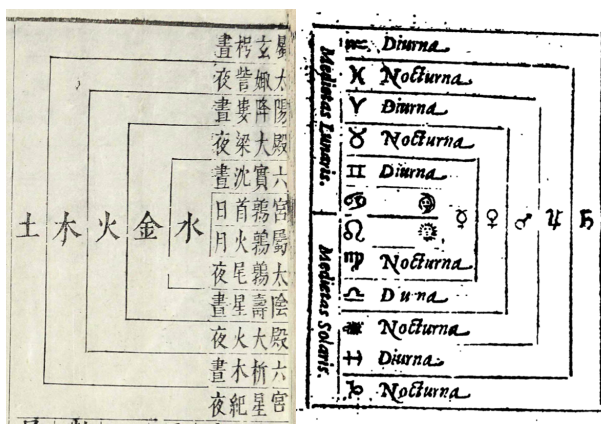 屬太陽殿六宮
屬太陰殿六宮
玄枵晝
娵訾夜
降婁晝
大梁夜
實沈晝
鶉首日
鶉火月
鶉尾夜
壽星晝
大火夜
析木晝
星紀夜
水
金
火
木
土
Medietas Lunaris.
Medietas Solaris.
♒ Diurna
♓ Nocturna
♈ Diurna
♉ Nocturna
♊ Diurna
♋ ☾
♌ ☉
♍ Nocturna
♎ D u na
Nocturna
Diurna
♑ Nocturna
☿ ♀ ♂ ♃ ♄